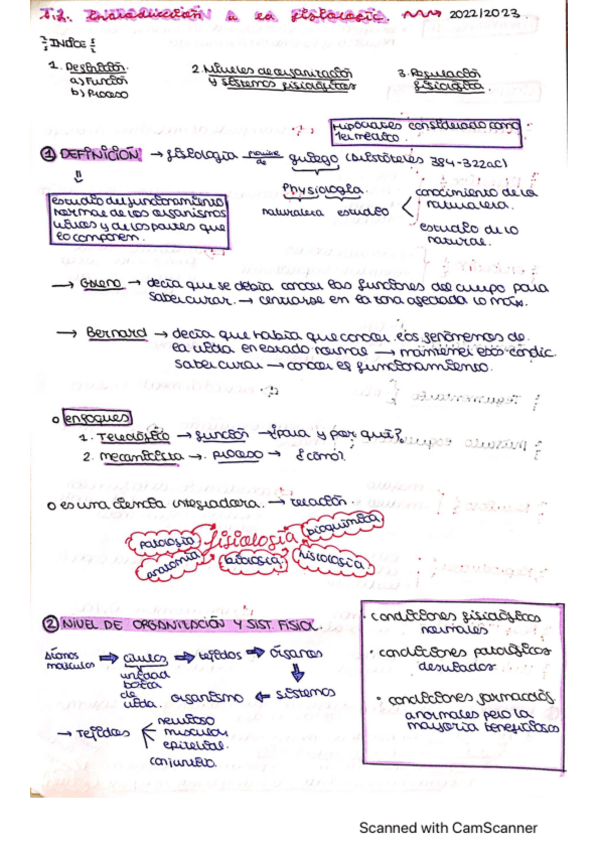 T.1. Introducción a la fisiología. 2022/2023
INDICE
1. Definición.
a) Función
b) Proceso
2. Niveles de organización
y sistemas fisiológicos
3. Regulación
fisiológica.
Hipócrates considerado como
1er médico.
1 DEFINICIÓN → fisiología viene de griego (Aristóteles 384-322aC)
estudio del funcionamiento
normal de los organismos
vivos y de las partes que
lo componen.
Physiología
naturaleza estudio
conocimiento de la
naturaleza.
estudio de lo
natural.
→ Galeno → decía que se debía conocer las funciones del cuerpo para
saber curar. → centrarse en la zona afectada lo máx.
→ Bernard → decía que había que conocer los fenómenos de
la vida en estado normal → mantener esas condic.
saber curar → conocer el funcionamiento.
o enfoques
1. Teleológico → función → ¿para y por qué?
2. mecanicista → proceso → ¿cómo?
o es una ciencia integradora. → relación.
patología fisiología bioquímica
anatomía biología histología
2 NIVEL DE ORGANIZACIÓN Y SIST. FISIOL.
átomos
moléculas ⇒ células ⇒ tejidos ⇒ órganos
unidad
básica
de
vida.
organismo ⇐ sistemas
→ Tejidos
nervioso
muscular
epitelial
conjuntivo
· condiciones fisiológicas
normales
· condiciones patológicas
• condiciones farmacológ
anormales pero la
mayoría beneficiosas
Scanned with CamScanner